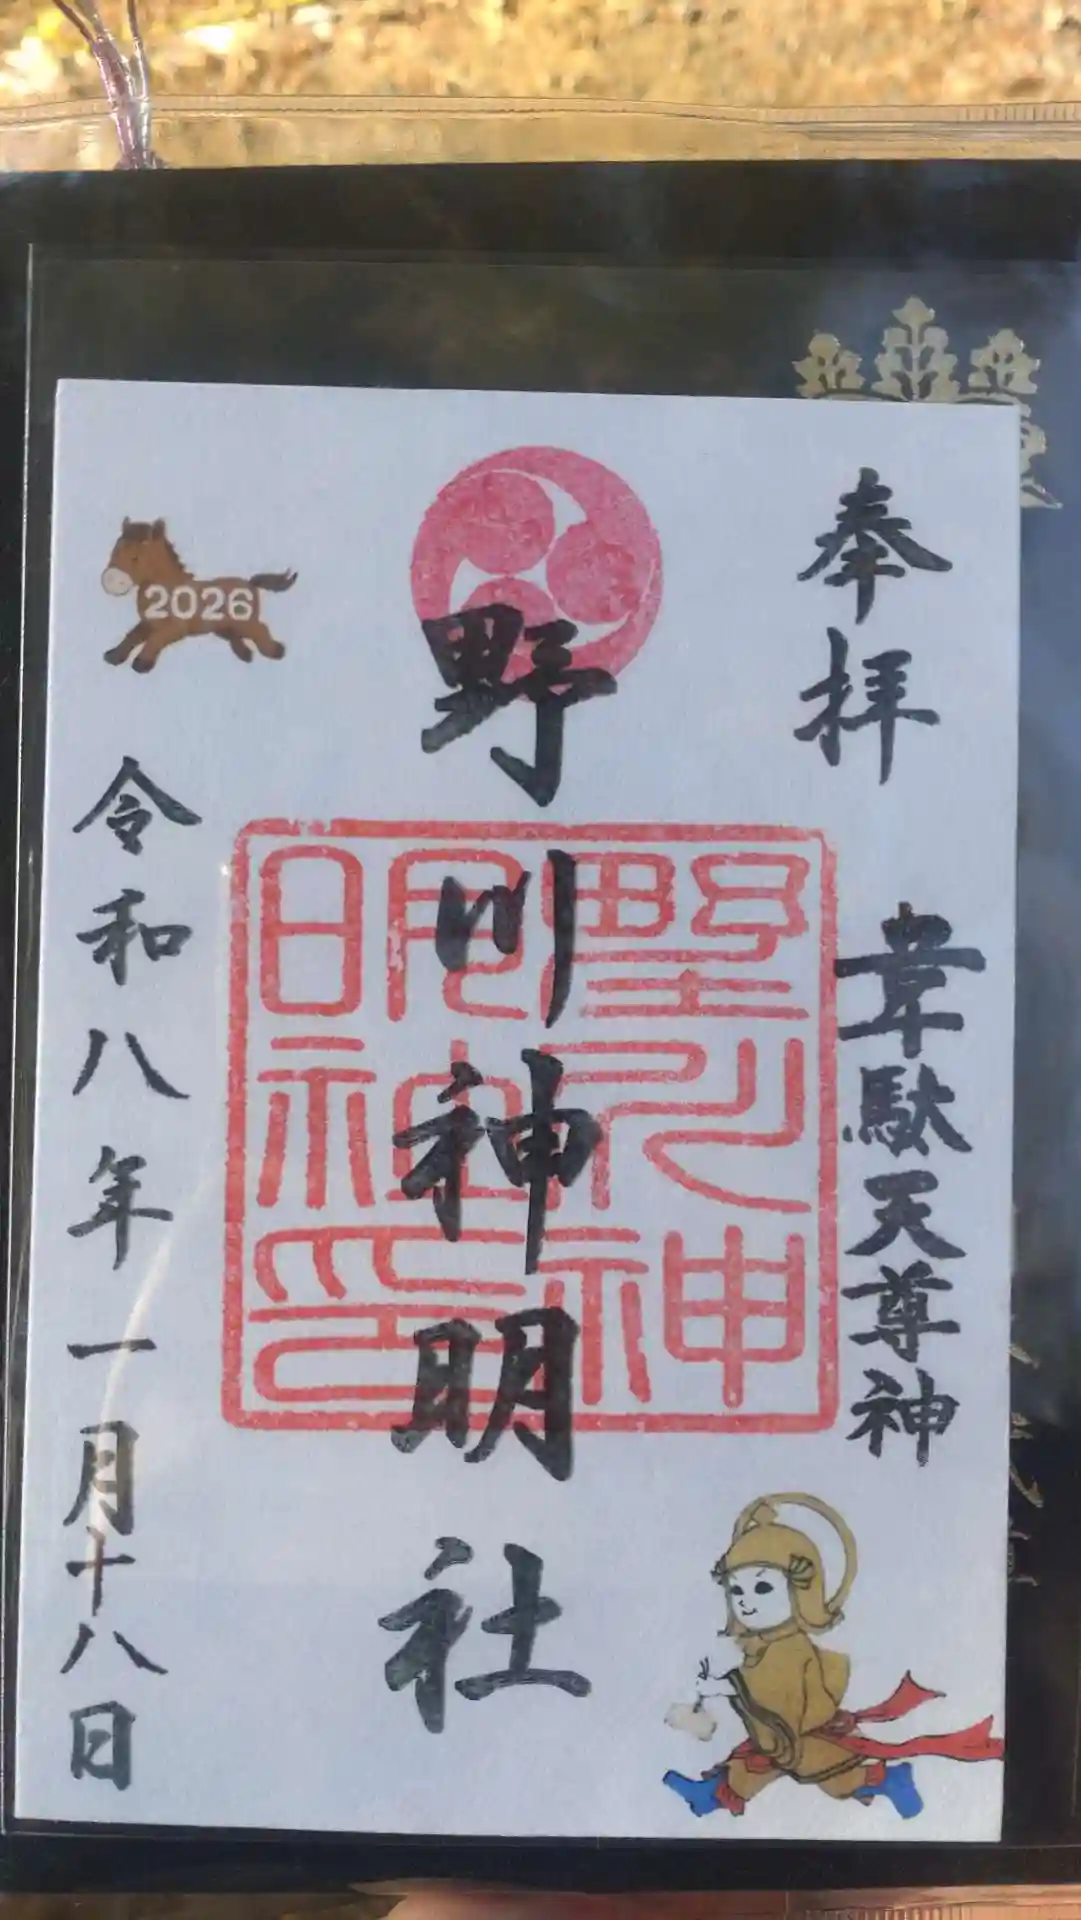 奉拝
韋駄天尊神
野川神明社
野川神
明神印
2026
令和八年一月十八日